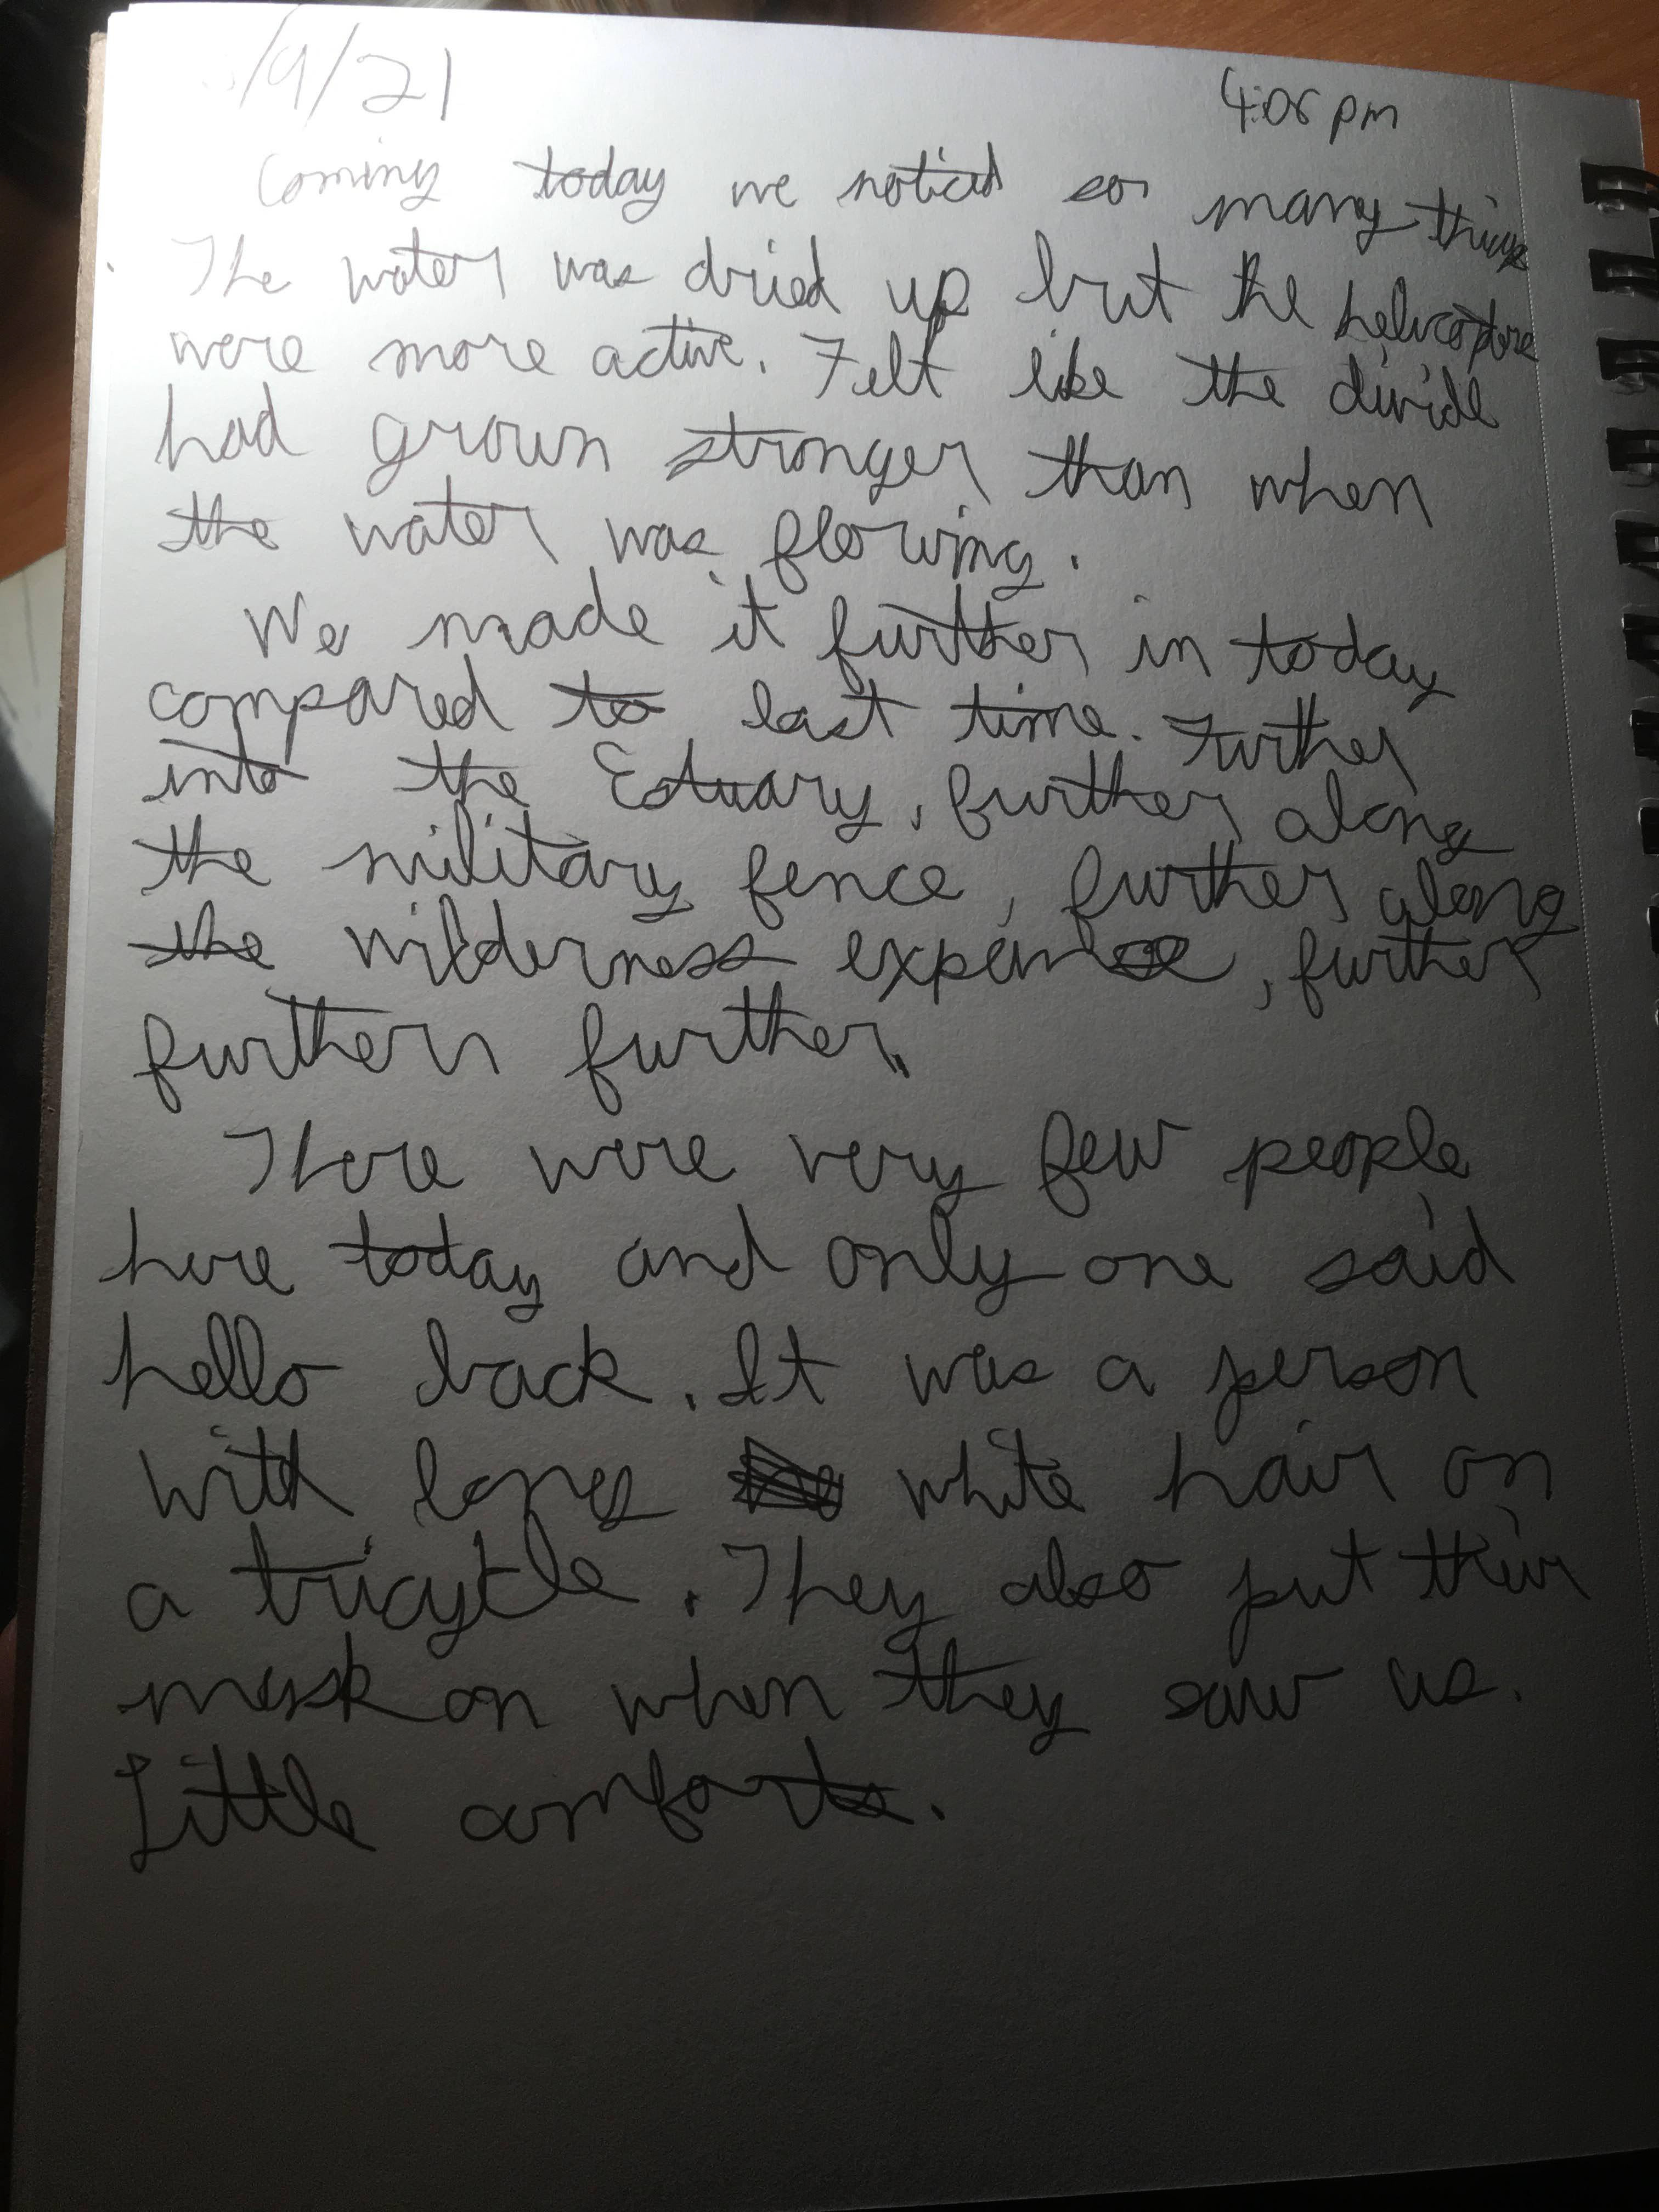 /9/21 4:06 pm
Coming today we noticed so many things
The water was dried up but the helicopters
were more active. Felt like the divide
had grown stronger than when
the water was flowing.
We made it further in today
compared to last time. Further
into the Estuary, further along
the military fence, further along
the wilderness expanse, further
further further.
There were very few people
here today and only one said
hello back. It was a person
with long white hair on
a tricycle. They also put their
mask on when they saw us.
Little comforts.